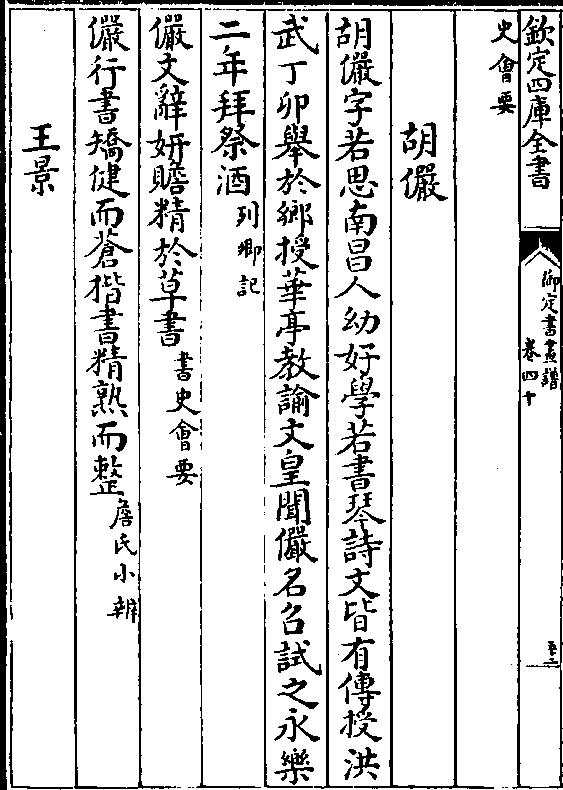 欽定四庫全書
御定書畫譜
卷四十
五十二
史會要
胡儼
胡儼字若思南昌人幼好學若書琴詩文皆有傳授洪
武丁卯舉於鄉授華亭教諭文皇聞儼名召試之永樂
二年拜祭酒列卿記
儼文辭妍贍精於草書書史會要
儼行書矯健而蒼楷書精熟而整詹氏小辨
王景